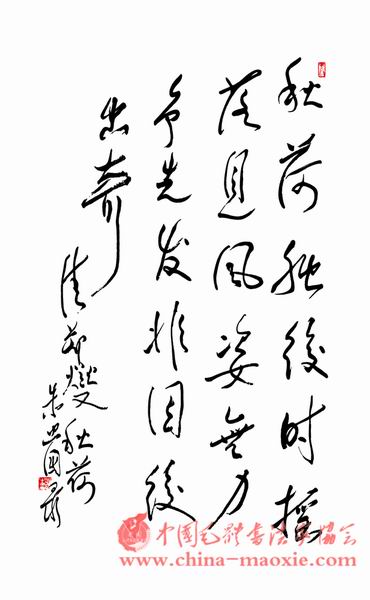 秋荷独後时摇
落見风姿無力
争先发非因後
出奇
清郑燮秋荷
朱
录
中国毛体书法家协会
www.china-maoxie.com